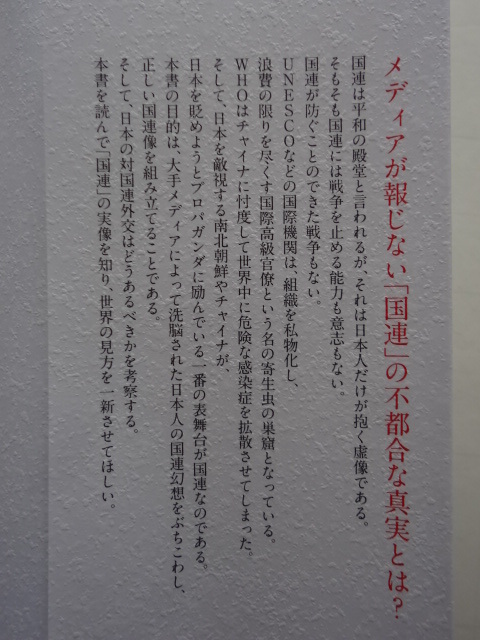 メディアが報じない「国連」の不都合な真実とは?
国連は平和の殿堂と言われるが、それは日本人だけが抱く虚像である。
そもそも国連には戦争を止める能力も意志もない。
国連が防ぐことのできた戦争もない。
UNESCOなどの国際機関は、組織を私物化し、
浪費の限りを尽くす国際高級官僚という名の寄生虫の巣窟となっている。
WHOはチャイナに忖度して世界中に危険な感染症を拡散させてしまった。
そして、日本を敵視する南北朝鮮やチャイナが、
日本を貶めようとプロパガンダに励んでいる一番の表舞台が国連なのである。
本書の目的は、大手メディアによって洗脳された日本人の国連幻想をぶちこわし、
正しい国連像を組み立てることである。
そして、日本の対国連外交はどうあるべきかを考察する。
本書を読んで「国連」の実像を知り、世界の見方を一新させてほしい。